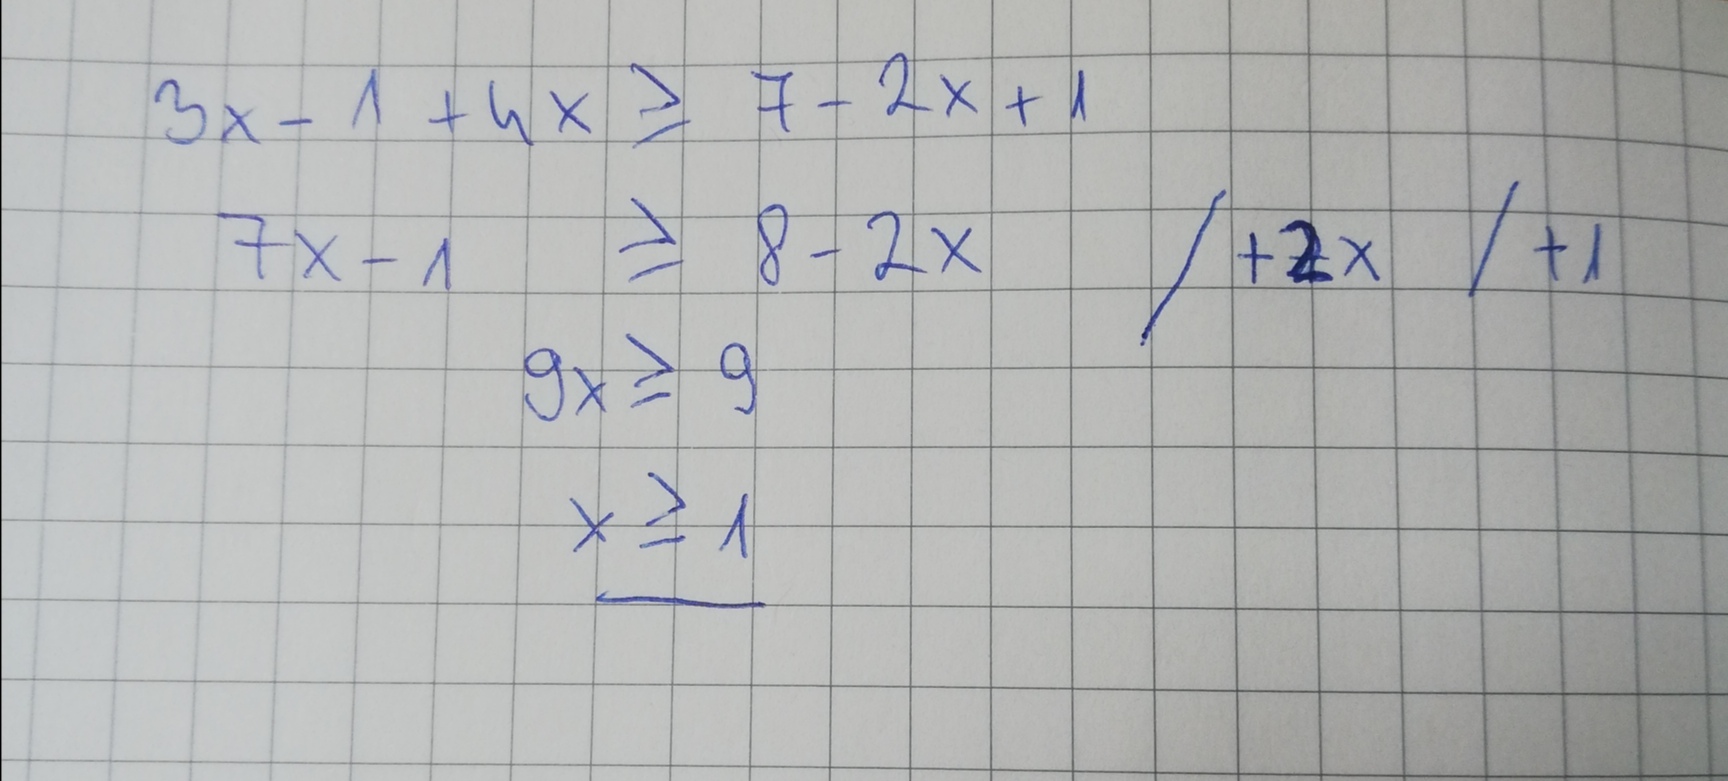 3x - 1 + 4x ≥ 7 - 2x + 1
7x - 1 ≥ 8 - 2x / +2x / +1
9x ≥ 9
x ≥ 1